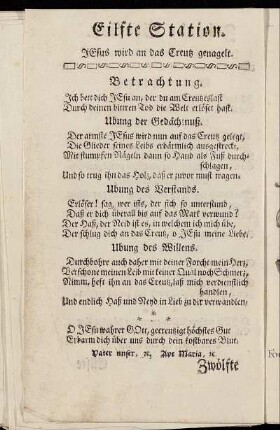 Eilfte Station.
JEsus wird an das Creutz genagelt.
Betrachtung.
Ich bett dich JEsu an, der du am Creutz erblaßt
Durch deinen bittren Tod die Welt erlöset hast.
Ubung der Gedächtnuß.
Der armste JEsus wird nun auf das Creutz gelegt,
Die Glieder seines Leibs erbärmlich ausgestreckt,
Mit stumpffen Nägeln dann so Hand als Fuß durch-
schlagen,
Und so trug ihn das Holz, daß er zuvor must tragen.
Ubung des Verstands.
Erlöser! sag, wer ists, der sich so unterstund,
Daß er dich überall bis auf das Mark verwund?
Der Haß, der Neid ist es, in welchem ich mich übe,
Der schlug dich an das Creutz, o JEsu meine Liebe.
Ubung des Willens.
Durchbohre auch daher mit deiner Forcht mein Herz,
Verschone meinen Leib mit keiner Qual noch Schmerz,
Nimm, heft ihn an das Creutz, laß mich verdienstlich
handlen,
Und endlich Haß und Neyd in Lieb zu dir verwandlen.
O JEsu wahrer GOtt, gecreutzigt höchstes Gut
Erbarm dich über uns durch dein kostbares Blut.
Vater unser, ꝛc. Ave Maria, ꝛc.
Zwölfte